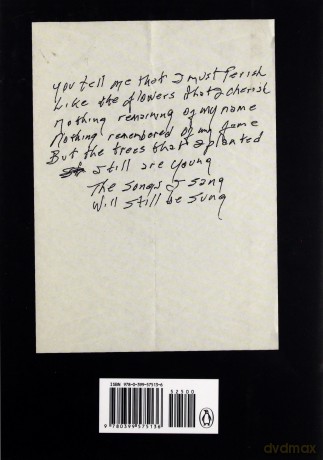 you tell me that I must Perish
Like the flowers that I cherish
Nothing remaining of my name
Nothing remembered of my fame
But the trees that I planted
Still are young
The songs I sang
Will still be sung
ISBN 978-0-399-57513-6
52500
9 780399 575136
dvdmax